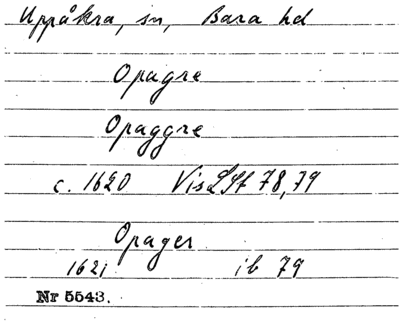 Uppåkra, sn, Bara hd
Opagre
Opaggre
c. 1620 VisLSt 78, 79
Opager
1621 ib 79
Nr 5543.